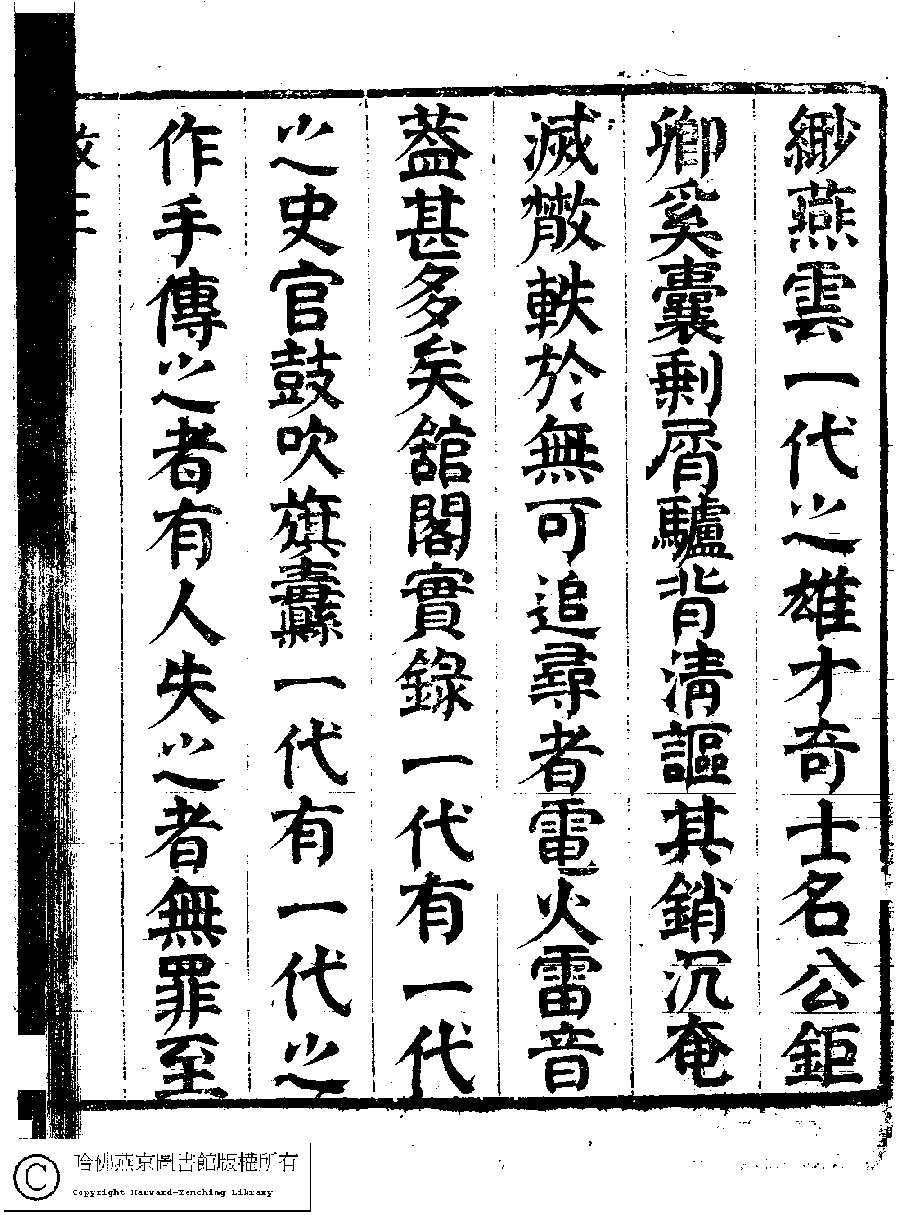 緲燕雲一代之雄才奇士名公鉅
卿奚囊剩屑驢背清謳其銷沉奄
滅撒軼於無可追尋者電火雷音
葢甚多矣舘閣實錄一代有一代
之史官鼓吹旗纛一代有一代之
作手傳之者有人失之者無罪至
哈佛燕京圖書館版權所有
Copyright Harvard-Yenching Library